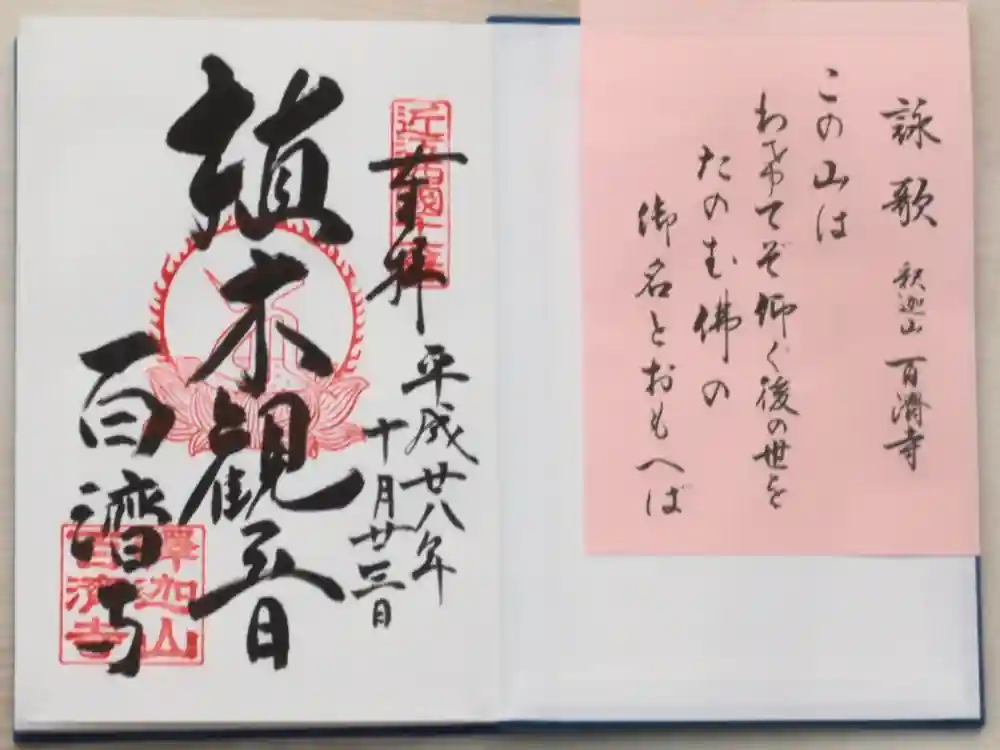 詠歌 釈迦山 百濟寺
この山は
わきてぞ仰ぐ後の世を
たのむ佛の
御名とおもへば
奉拝 平成廿八年
十月廿三日
植木観音
百濟寺
釋迦山
百濟寺